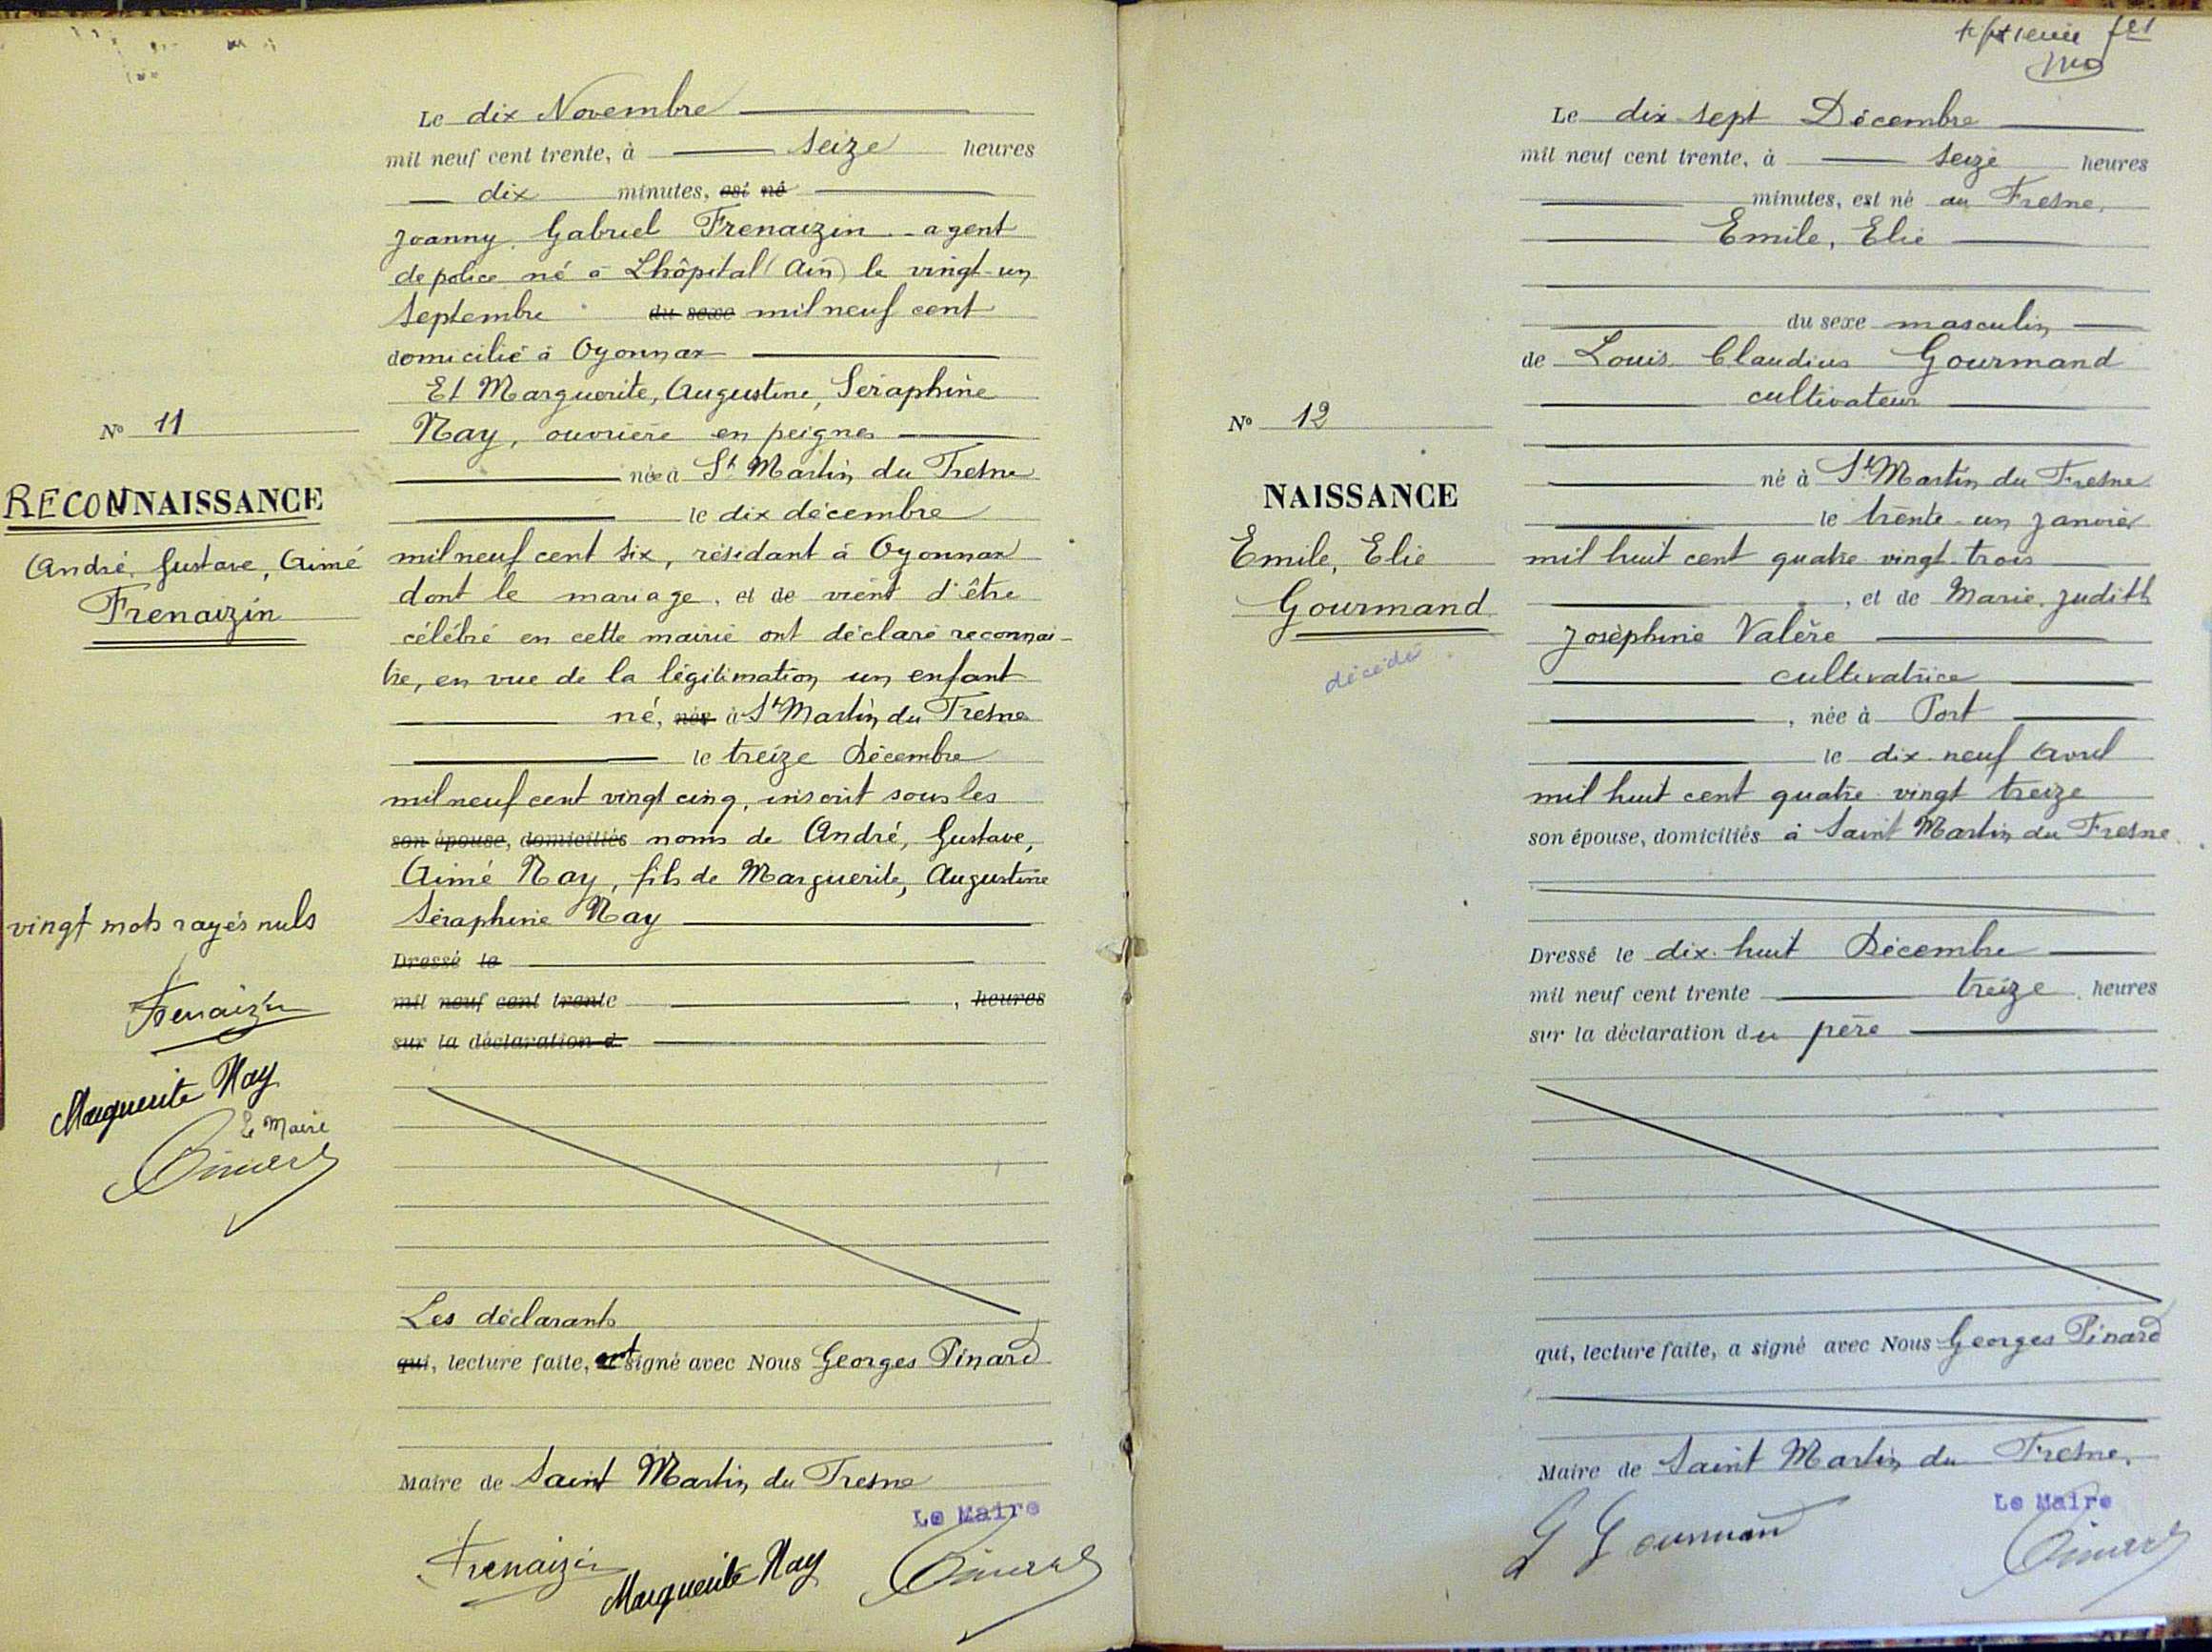 Le dix Novembre
mil neuf cent trente, à seize heures
dix minutes, est né
Joanny, Gabriel Frenaizin agent
de police né à Lhôpital (Ain) le vingt-un
Septembre du sexe mil neuf cent
domicilié à Oyonnax
Et Marguerite, Augustine, Séraphine
Nay, ouvrière en peignes
née à St Martin du Fresne
le dix décembre
mil neuf cent six, résidant à Oyonnax
dont le mariage, et de vient d'être
célébré en cette mairie ont déclaré reconnaî-
tre, en vue de la légitimation un enfant
né, née à St Martin du Fresne
le treize Décembre
mil neuf cent vingt cinq, inscrit sous les
son épouse, domiciliés noms de André, Gustave,
Aimé Nay, fils de Marguerite, Augustine
Séraphine Nay
Dressé le
mil neuf cent trente , heures
sur la déclaration d
Les déclarants
qui, lecture faite, ont signé avec Nous Georges Pinard
Maire de Saint Martin du Fresne
Le Maire
Frenaizin
Marguerite Nay
Pinard
No 11
RECONNAISSANCE
André, Gustave, Aimé
Frenaizin
vingt mots rayés nuls
Frenaizin
Marguerite Nay
Le Maire
Pinard
Le dix-sept Décembre
mil neuf cent trente, à seize heures
minutes, est né au Fresne,
Emile, Elie
du sexe masculin
de Louis Claudius Gourmand
cultivateur
né à St Martin du Fresne
le trente-un janvier
mil huit cent quatre-vingt-trois
, et de Marie, Judith
Joséphine Valère
cultivatrice
, née à Port
le dix-neuf Avril
mil huit cent quatre-vingt treize
son épouse, domiciliés à Saint Martin du Fresne.
Dressé le dix-huit Décembre
mil neuf cent trente treize heures
sur la déclaration du père
qui, lecture faite, a signé avec Nous Georges Pinard
Maire de Saint Martin du Fresne.
Le Maire
L Gourmand
Pinard
No 12
NAISSANCE
Emile, Elie
Gourmand
décédé